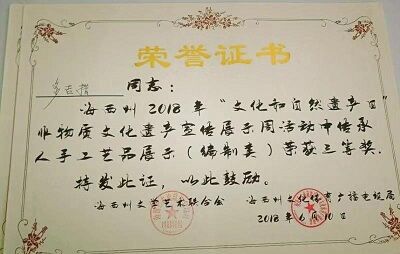 荣誉证书
同志:
海西州2018年“文化和自然遗产日”
非物质文化遗产宣传展示周活动中传承
人手工艺品展示(编制类)荣获三等奖。
特发此证,以此鼓励。
海西州文学艺术联合会 海西州文化体育广播电视局
2018年6月10日